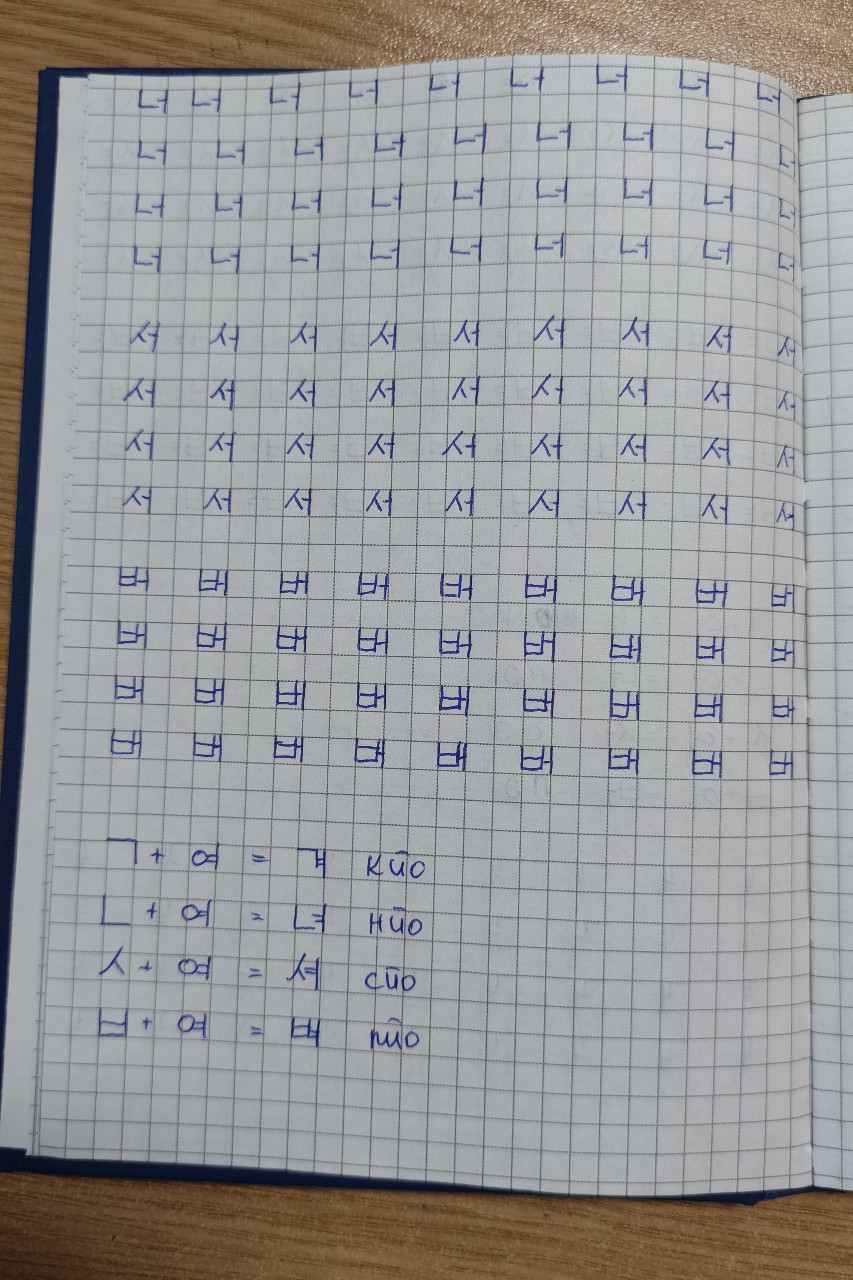 너 너 너 너 너 너 너 너 너
너 너 너 너 너 너 너 너 너
너 너 너 너 너 너 너 너 너
너 너 너 너 너 너 너 너 너
서 서 서 서 서 서 서 서 서
서 서 서 서 서 서 서 서 서
서 서 서 서 서 서 서 서 서
서 서 서 서 서 서 서 서 서
버 버 버 버 버 버 버 버 버
버 버 버 버 버 버 버 버 버
버 버 버 버 버 버 버 버 버
버 버 버 버 버 버 버 버 버
ㄱ + 여 = 겨 кйо
ㄴ + 여 = 녀 нйо
ㅅ + 여 = 셔 сйо
ㅂ + 여 = 벼 пйо